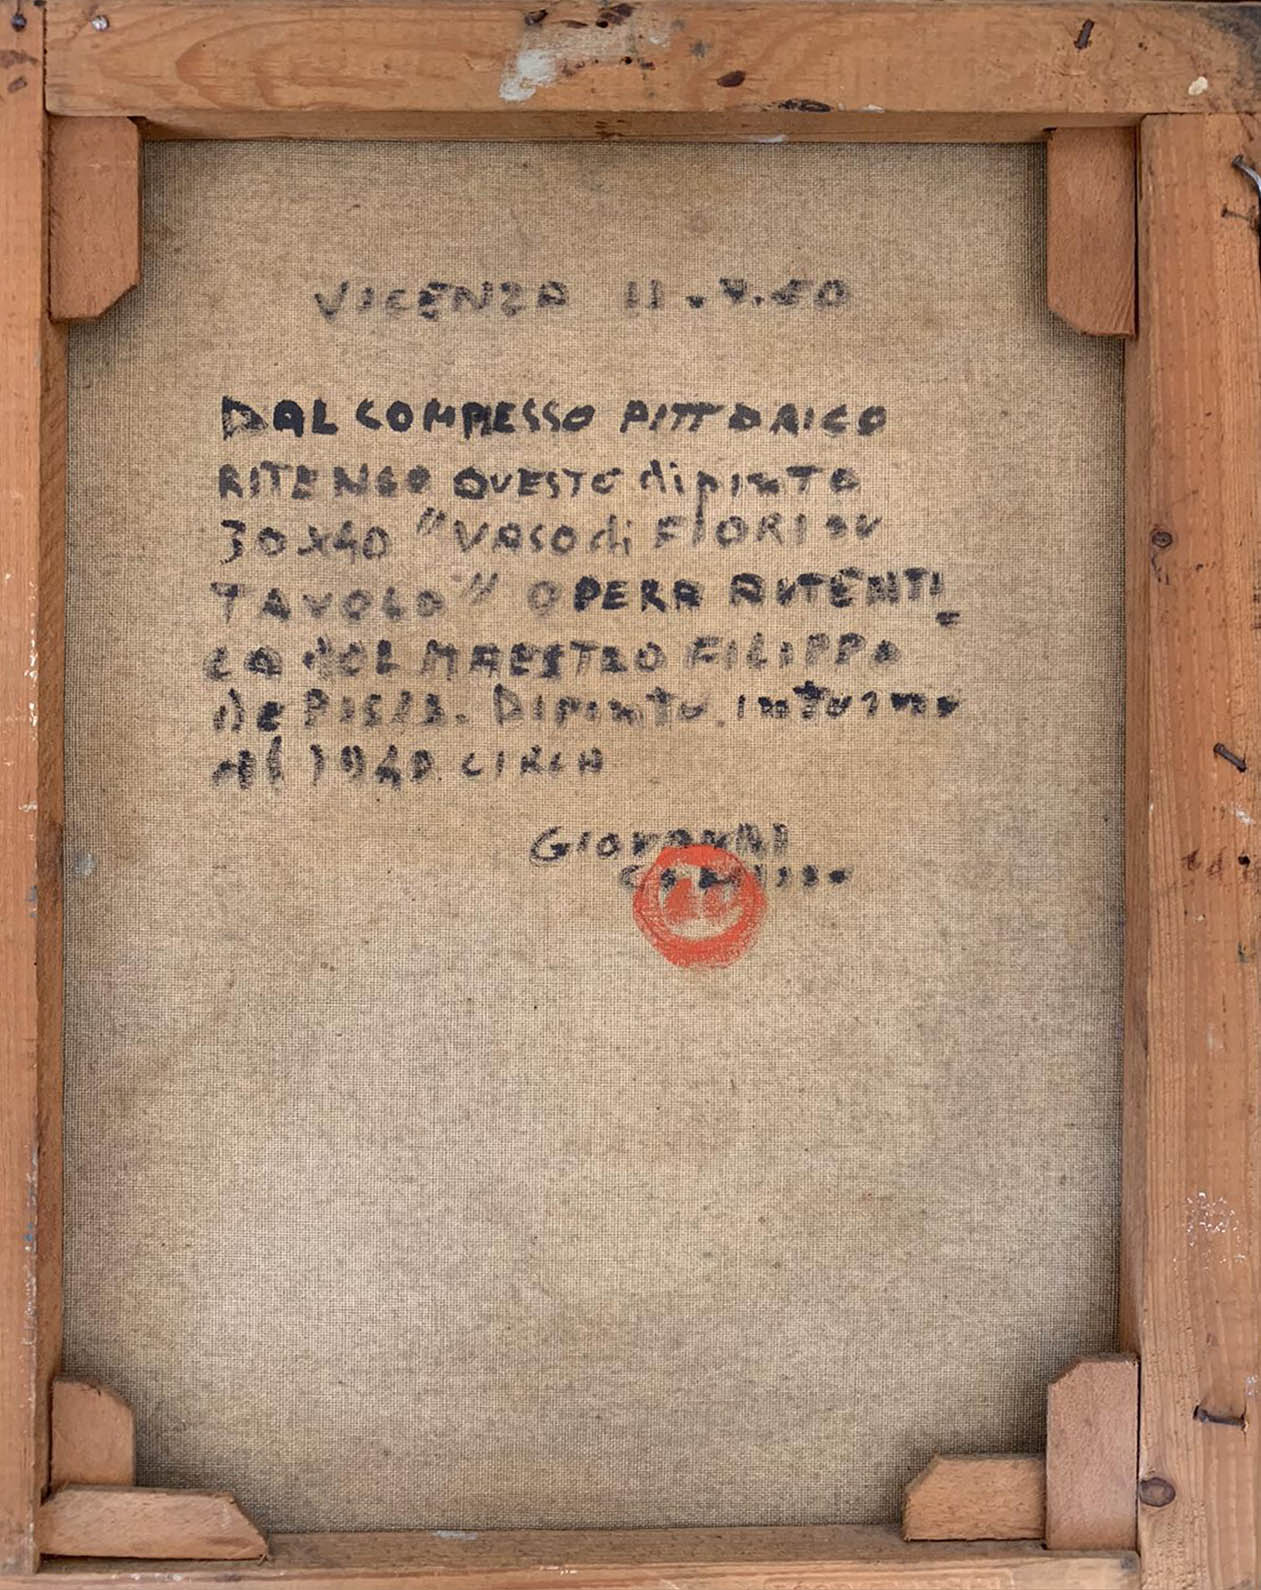 VICENZA 11.7.50
DAL COMPLESSO PITTORICO
RITENGO QUESTO dipinto
30X40 "VASO di FIORI SU
TAVOLO" OPERA AUTENTI_
CA del MAESTRO FILIPPO
de PISIS. Dipinto intorno
al 1940 CIRCA
GIOVANNI
COMISSO